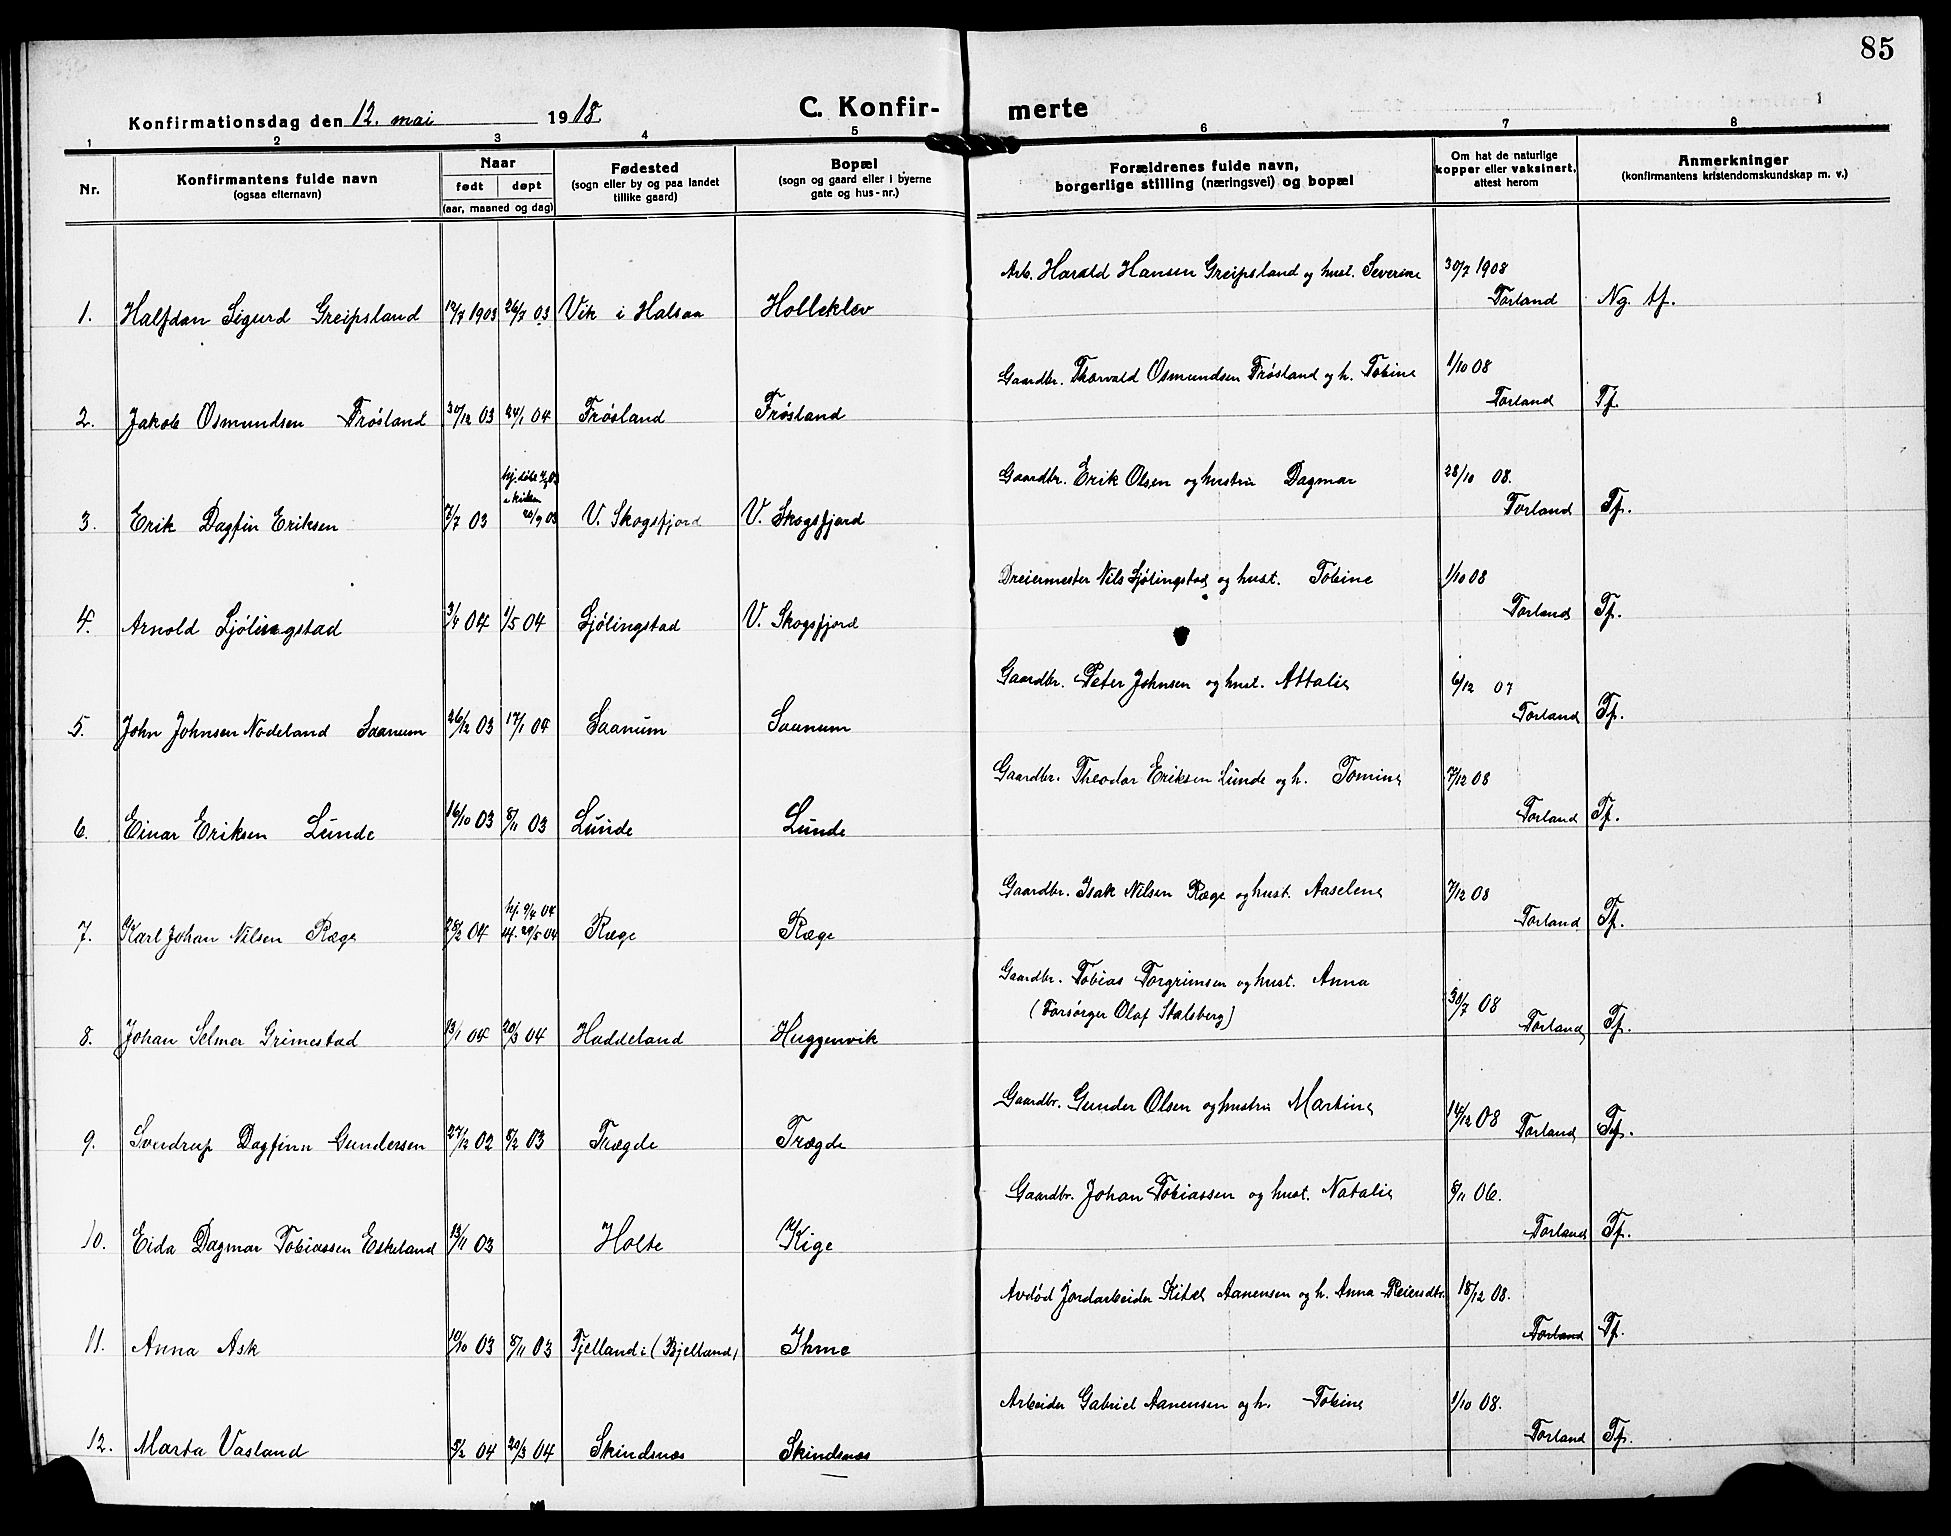 85
Konfirmationsdag den 12. mai 1918
C. Konfir- merte
1 2 3 4 5 6 7 8
Nr.
Konfirmantens fulde navn
(ogsaa efternavn)
Naar
født døpt
(aar, maaned og dag)
Fødested
(sogn eller by og paa landet
tillike gaard)
Bopæl
(sogn og gaard eller i byerne
gate og hus-nr.)
Forældrenes fulde navn,
borgerlige stilling (næringsvei) og bopæl
Om hat de naturlige
kopper eller vaksinert,
attest herom
Anmerkninger
(konfirmantens kristendomskundskap m. v.)
Arb. Harald Hansen Greipsland og hust. Severine 30/7 1908
1. Halfdan Sigurd Greipsland 17/7 1903 26/7 03 Vik i Halsaa Holleklev Torland Ng. tf.
Gaardbr. Thorvald Osmundsen Frøsland og h. Tobine 1/10 08
2. Jakob Osmundsen Frøsland 30/12 03 24/1 04 Frøsland Frøsland Torland Tf.
Gaardbr. Erik Olsen og hustru Dagmar 28/10 08.
3. Erik Dagfin Eriksen 7/7 03 i kirken 20/9 03 V. Skogsfjord V. Skogsfjord Torland Tf.
Dreiermester Nils Sjølingstad og hust. Tobine 1/10 08
4. Arnold Sjølingstad 3/4 04 1/5 04 Sjølingstad V. Skogsfjord Torland Tf.
Gaardbr. Peter Johnsen og hust. Attalie 6/12 07
5. John Johnsen Nodeland Saanum 26/12 03 17/1 04 Saanum Saanum Torland Tf.
Gaardbr. Theodor Eriksen Lunde og h. Tomine 7/12 08
6. Einar Eriksen Lunde 16/10 03 8/11 03 Lunde Lunde Torland Tf.
Gaardbr. Isak Nilsen Ræge og hust. Aaselene 7/12 08
7. Karl Johan Nilsen Ræge 28/2 04 hj. 9/4 04 29/5 04 Ræge Ræge Torland Tf.
Gaardbr. Tobias Torgrimsen og hust. Anna
(Forsørger Olaf Stalsberg) 30/7 08
8. Johan Selmer Grimestad 13/1 04 20/3 04 Haddeland Huggenvik Torland Tf.
Gaardbr. Gunder Olsen og hustru Martine 14/12 08
9. Sondrup Dagfinn Gundersen 27/12 02 8/2 03 Trægde Trægde Torland Tf.
Gaardbr. Johan Tobiassen og hust. Natalie 8/11 06.
10. Eida Dagmar Tobiassen Eskeland 13/11 03 Holte Kige Torland Tf.
Avdød Jordarbeider Kitel Aanensen og h. Anna Reiersdtr. 18/12 08.
11. Anna Ask 10/10 03 8/11 03 Fjelland i (Bjelland) Ihme Torland Tf.
Arbeider Gabriel Aanensen og h. Tobine 1/10 08.
12. Marta Vasland 5/2 04 20/3 04 Skindsnæs Skindsnæs Torland Tf.